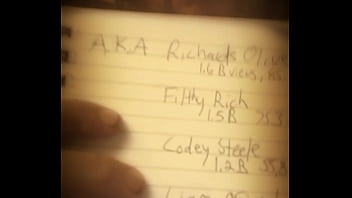 A.K.A Richards Olive
1.6B views, 85
Filthy Rich
1.5B 253
Codey Steele
1.2B 55,8